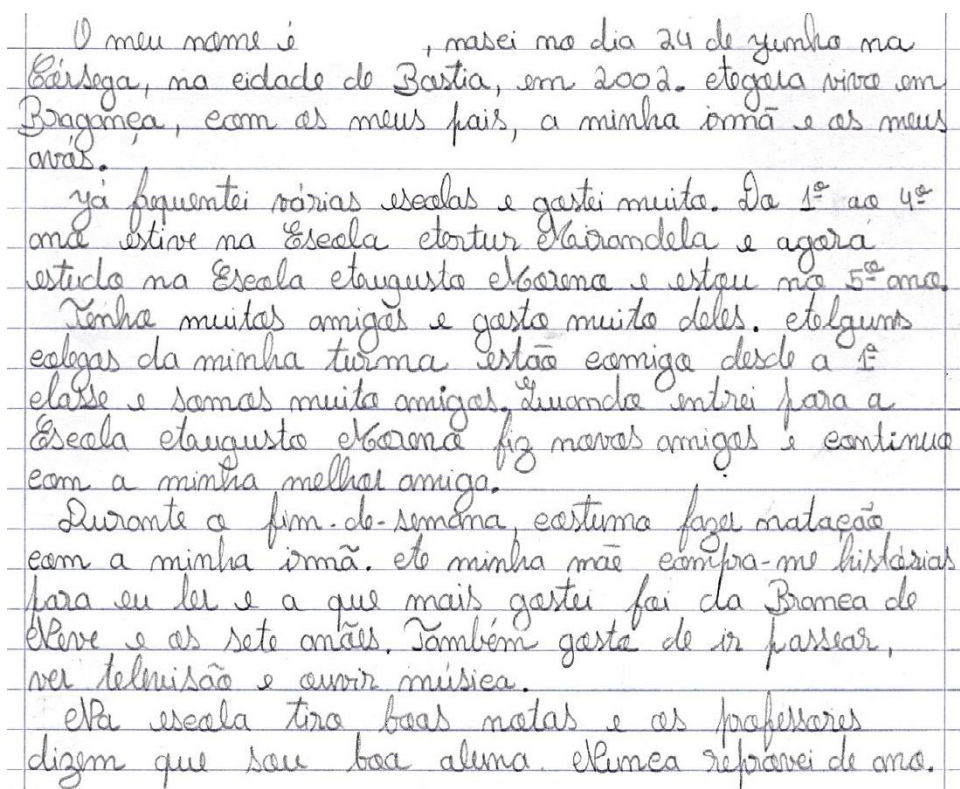 O meu nome é , nasci no dia 24 de junho na
Córsega, na cidade de Bastia, em 2002. Agora vivo em
Bragança, com os meus pais, a minha irmã e os meus
avós.
Já fequentei várias escolas e gostei muito. Do 1º ao 4º
ano estive na Escola Artur Mirandela e agora
estudo na Escola Augusto Moreno e estou no 5º ano.
Tenho muitos amigos e gosto muito deles. Alguns
colegas da minha turma estão comigo desde a 1ª
classe e somos muito amigos. Quando entrei para a
Escola Augusto Moreno fiz novos amigos e continuo
com a minha melhor amiga.
Durante o fim-de-semana, costumo fazer natação
com a minha irmã. A minha mãe compra-me histórias
para eu ler e a que mais gostei foi da Branca de
Neve e os sete anões. Também gosto de ir passear,
ver televisão e ouvir música.
Na escola tiro boas notas e os professores
dizem que sou boa aluna. Nunca reprovei de ano.